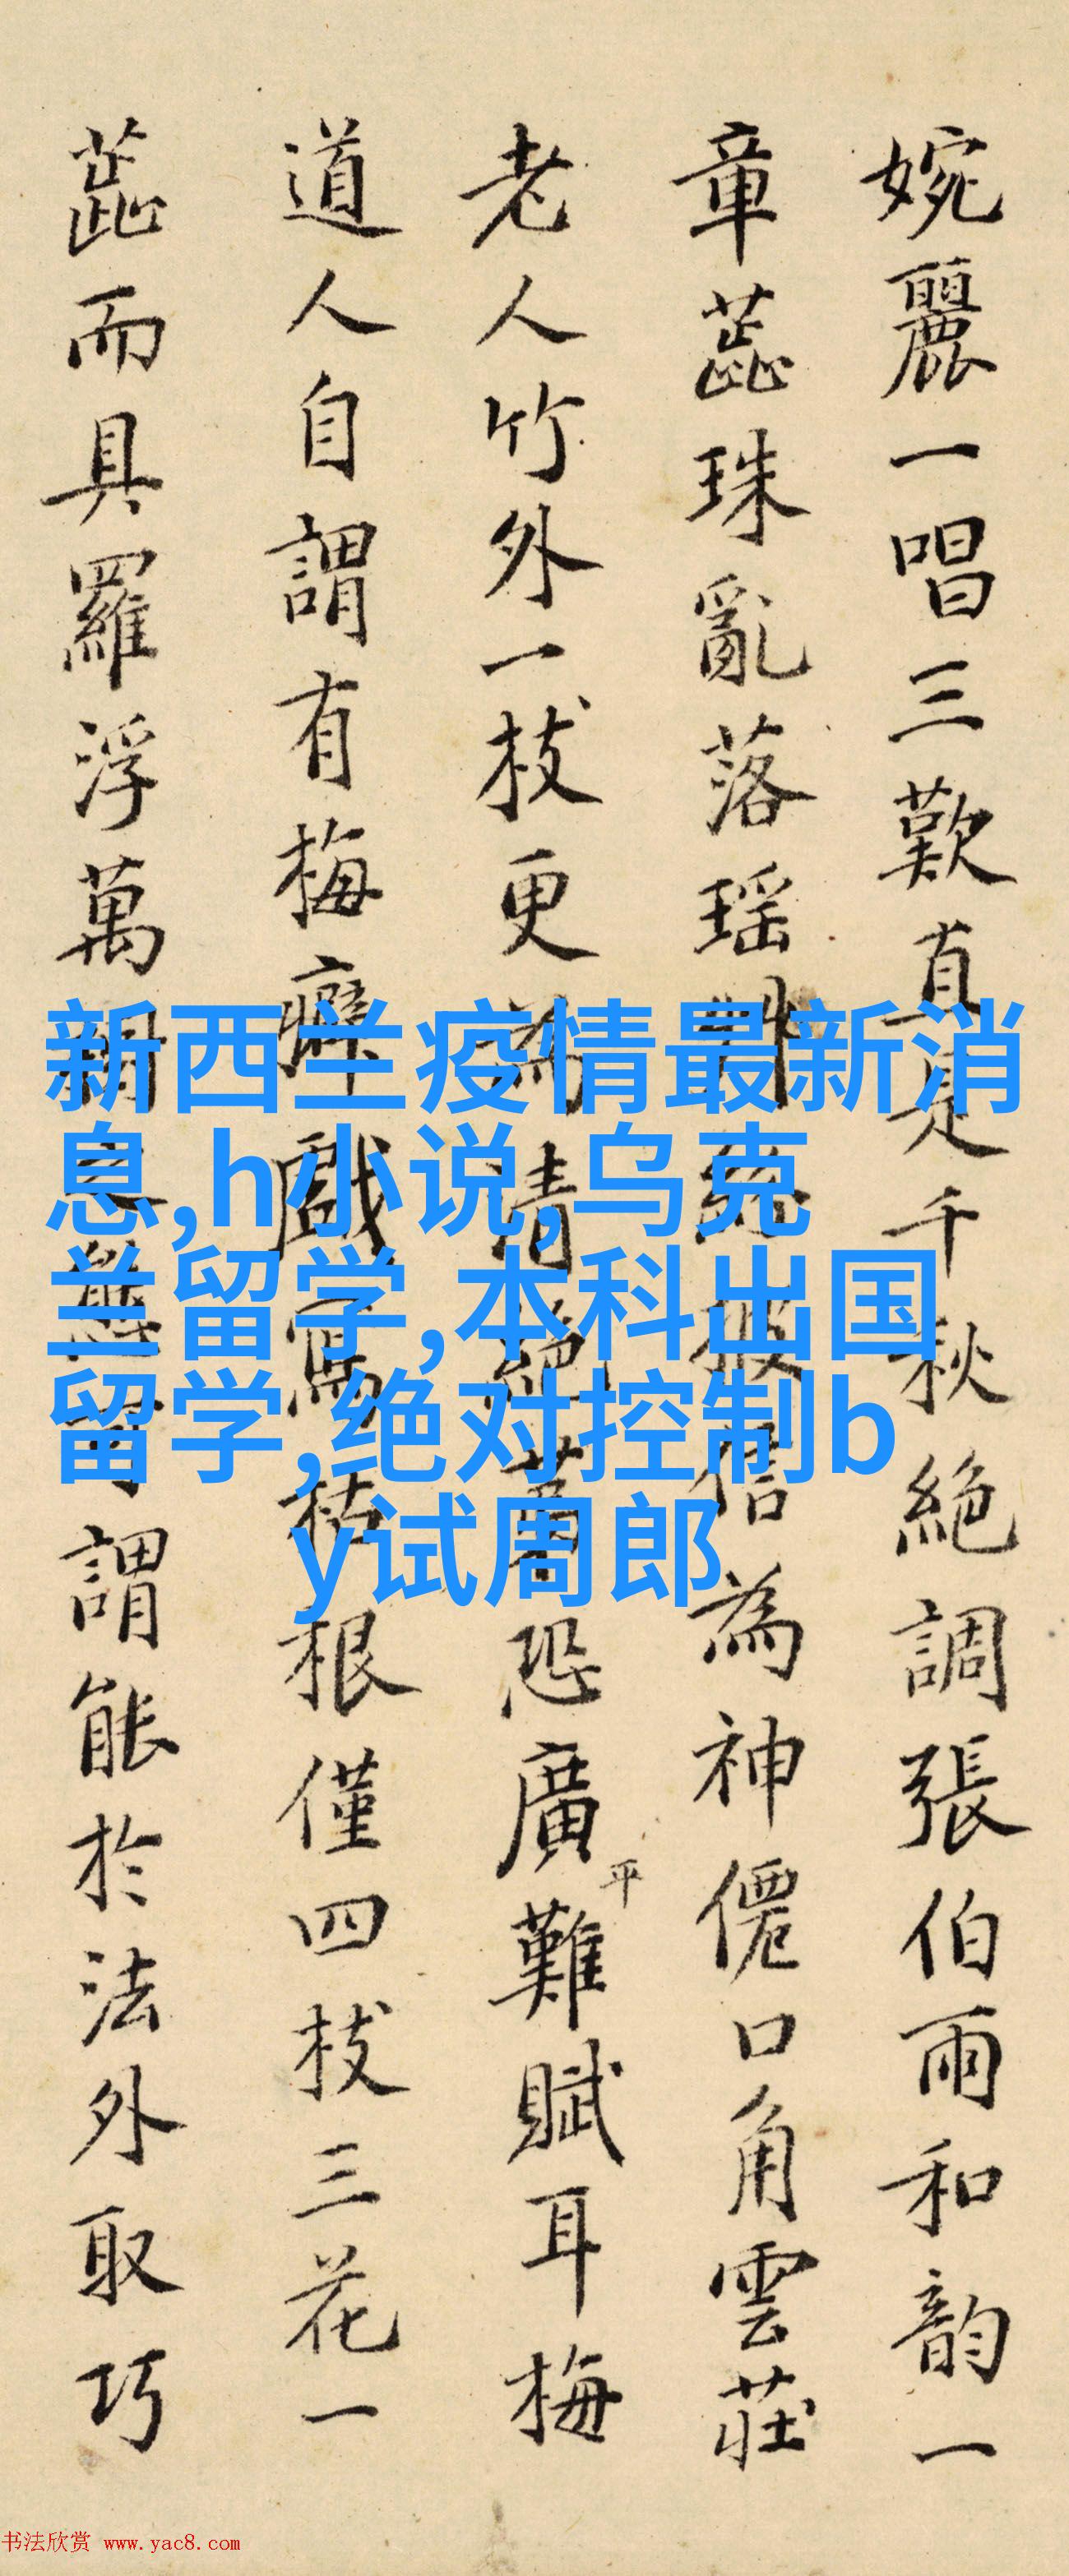 婉麗一唱三歎真是千秋絶調張伯雨和韵一
章蕋珠亂落瑶 為神僊口角雲莊
老人竹外一枝更為清絶 恐廣平難賦耳梅
道人自謂有梅癖戲寫枯根僅四枝三花一
蕋而具羅浮萬 謂能於法外取巧
新西兰疫情最新消
息,h小说,乌克
兰留学,本科出国
留学,绝对控制b
y试周郎
书法欣赏 www.yac8.com